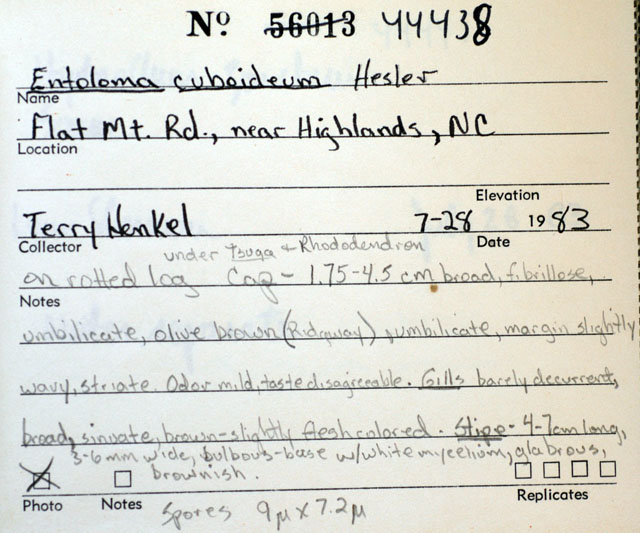 Nº 56013 44438
Entoloma cuboideum Hesler
Name
Flat Mt. Rd., near Highlands, NC
Location
Elevation
Terry Henkel 7-28 1983
Collector Date
under Tsuga + Rhododendron
on rotted log Cap - 1.75-4.5 cm broad, fibrillose,
Notes
umbilicate, olive brown (Ridgway), umbilicate, margin slightly
wavy, striate. Odor mild, taste disagreeable. Gills barely decurrent,
broad, sinuate, brown-slightly flesh colored. Stipe - 4-7cm long,
3-6mm wide, bulbous-base w/white mycelium, glabrous,
brownish.
Photo Notes Replicates
Spores 9µ x 7.2µ